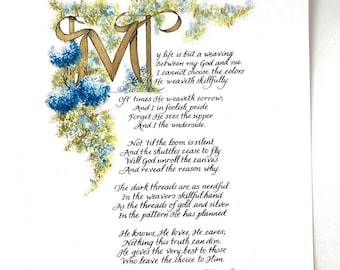 My life is but a weaving
between my God and me
I cannot choose the colors
He weaveth skillfully.
Oft times He weaveth sorrow,
And I in foolish pride
Forget He sees the upper
And I the underside.
Not 'til the loom is silent
And the shuttles cease to fly
Will God unroll the canvas
And reveal the reason why.
The dark threads are as needful
In the weaver's skillful hand
As the threads of gold and silver
In the pattern He has planned
He knows, He loves, He cares;
Nothing this truth can dim.
He gives the very best to those
Who leave the choice to Him.